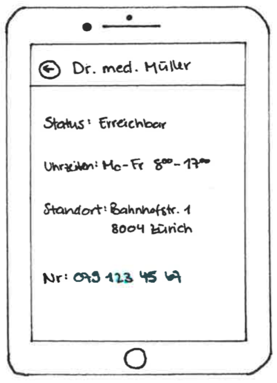 Dr. med. Müller
Status: Erreichbar
Uhrzeiten: Mo-Fr 8⁰⁰-17⁰⁰
Standort: Bahnhofstr. 1
8004 Zürich
Nr: 079 123 45 67